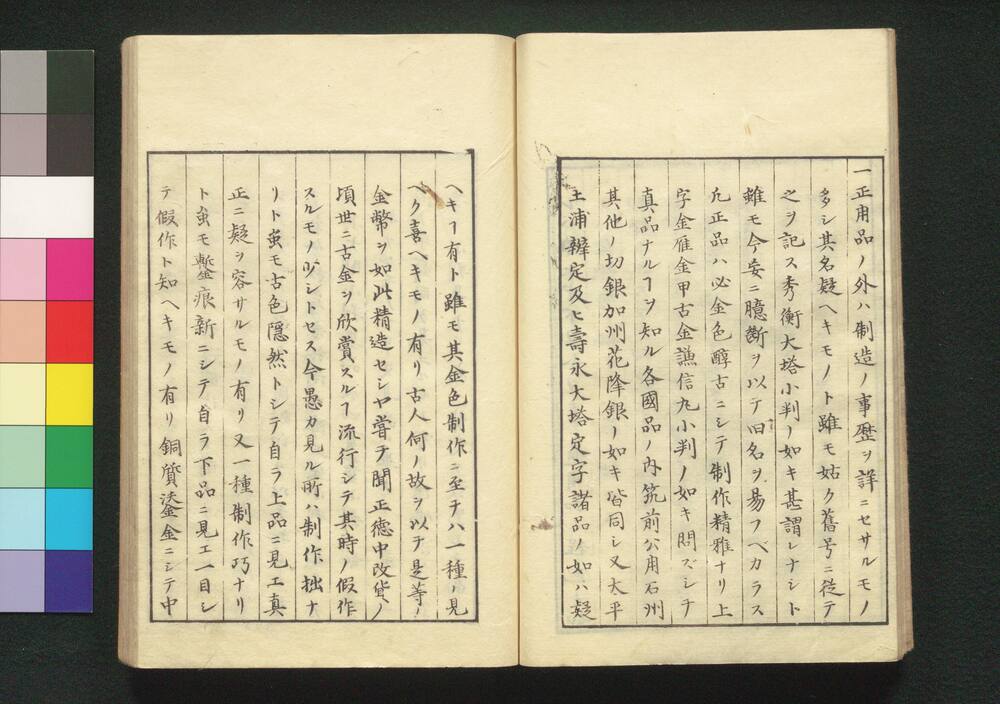 一正用品ノ外ハ制造ノ事歴ヲ詳ニセサルモノ
多シ其名疑ヘキモノト雖モ姑ク舊号ニ従テ
之ヲ記ス秀衡大塔小判ノ如キ甚謂レナシト
雖モ今妄ニ臆断ヲ以テ旧名ヲ易フベカラス
凡正品ハ必金色醇古ニシテ制作精雅ナリ上
字金雁金甲古金謙信丸小判ノ如キ問ズシテ
真品ナルヿヲ知ル各國品ノ内筑前公用石州
其他ノ切銀加州花降銀ノ如キ皆同シ又太平
土浦辧定及ヒ壽永大塔定字諸品ノ如ハ疑
ヘキヿ有ト雖モ其金色制作ニ至テハ一種ノ見
ヘク喜ヘキモノ有リ古人何ノ故ヲ以テ是等ノ
金幣ヲ如此精造セシヤ嘗テ聞正徳中改貨ノ
頃世ニ古金ヲ欣賞スルヿ流行シテ其時ノ假作
スルモノ少シトセス今愚カ見ル所ハ制作拙ナ
リト虽モ古色隠然トシテ自ラ上品ニ見エ真
正ニ疑ヲ容サルモノ有リ又一種制作巧ナリ
ト虽モ鏨痕新ニシテ自ラ下品ニ見エ一目シ
テ假作ト知ヘキモノ有リ銅質塗金ニシテ中